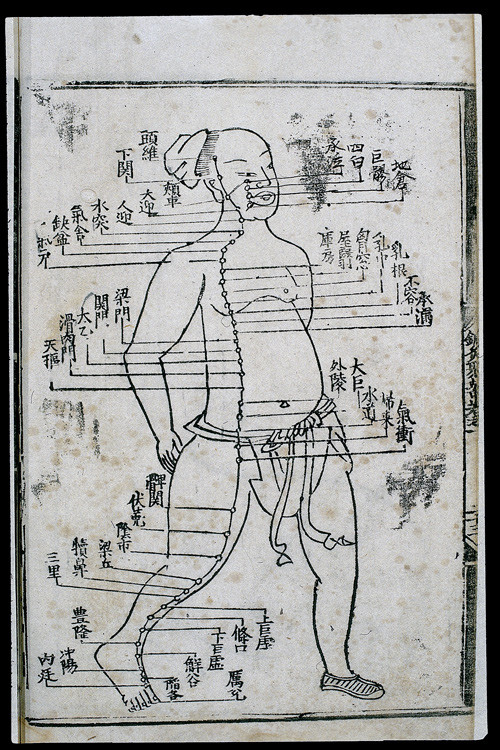 頭維
下関
頰車
大迎
人迎
水突
氣舍
缺盆
承泣
四白
巨髎
地倉
庫房
屋翳
膺窓
乳中
乳根
不容
承滿
梁門
関門
太乙
滑肉門
天樞
外陵
大巨
水道
歸来
氣衝
髀関
伏兎
陰市
梁丘
犢鼻
三里
上巨虛
條口
下巨虛
豊隆
解谷
冲陽
陷谷
内廷
厲兌